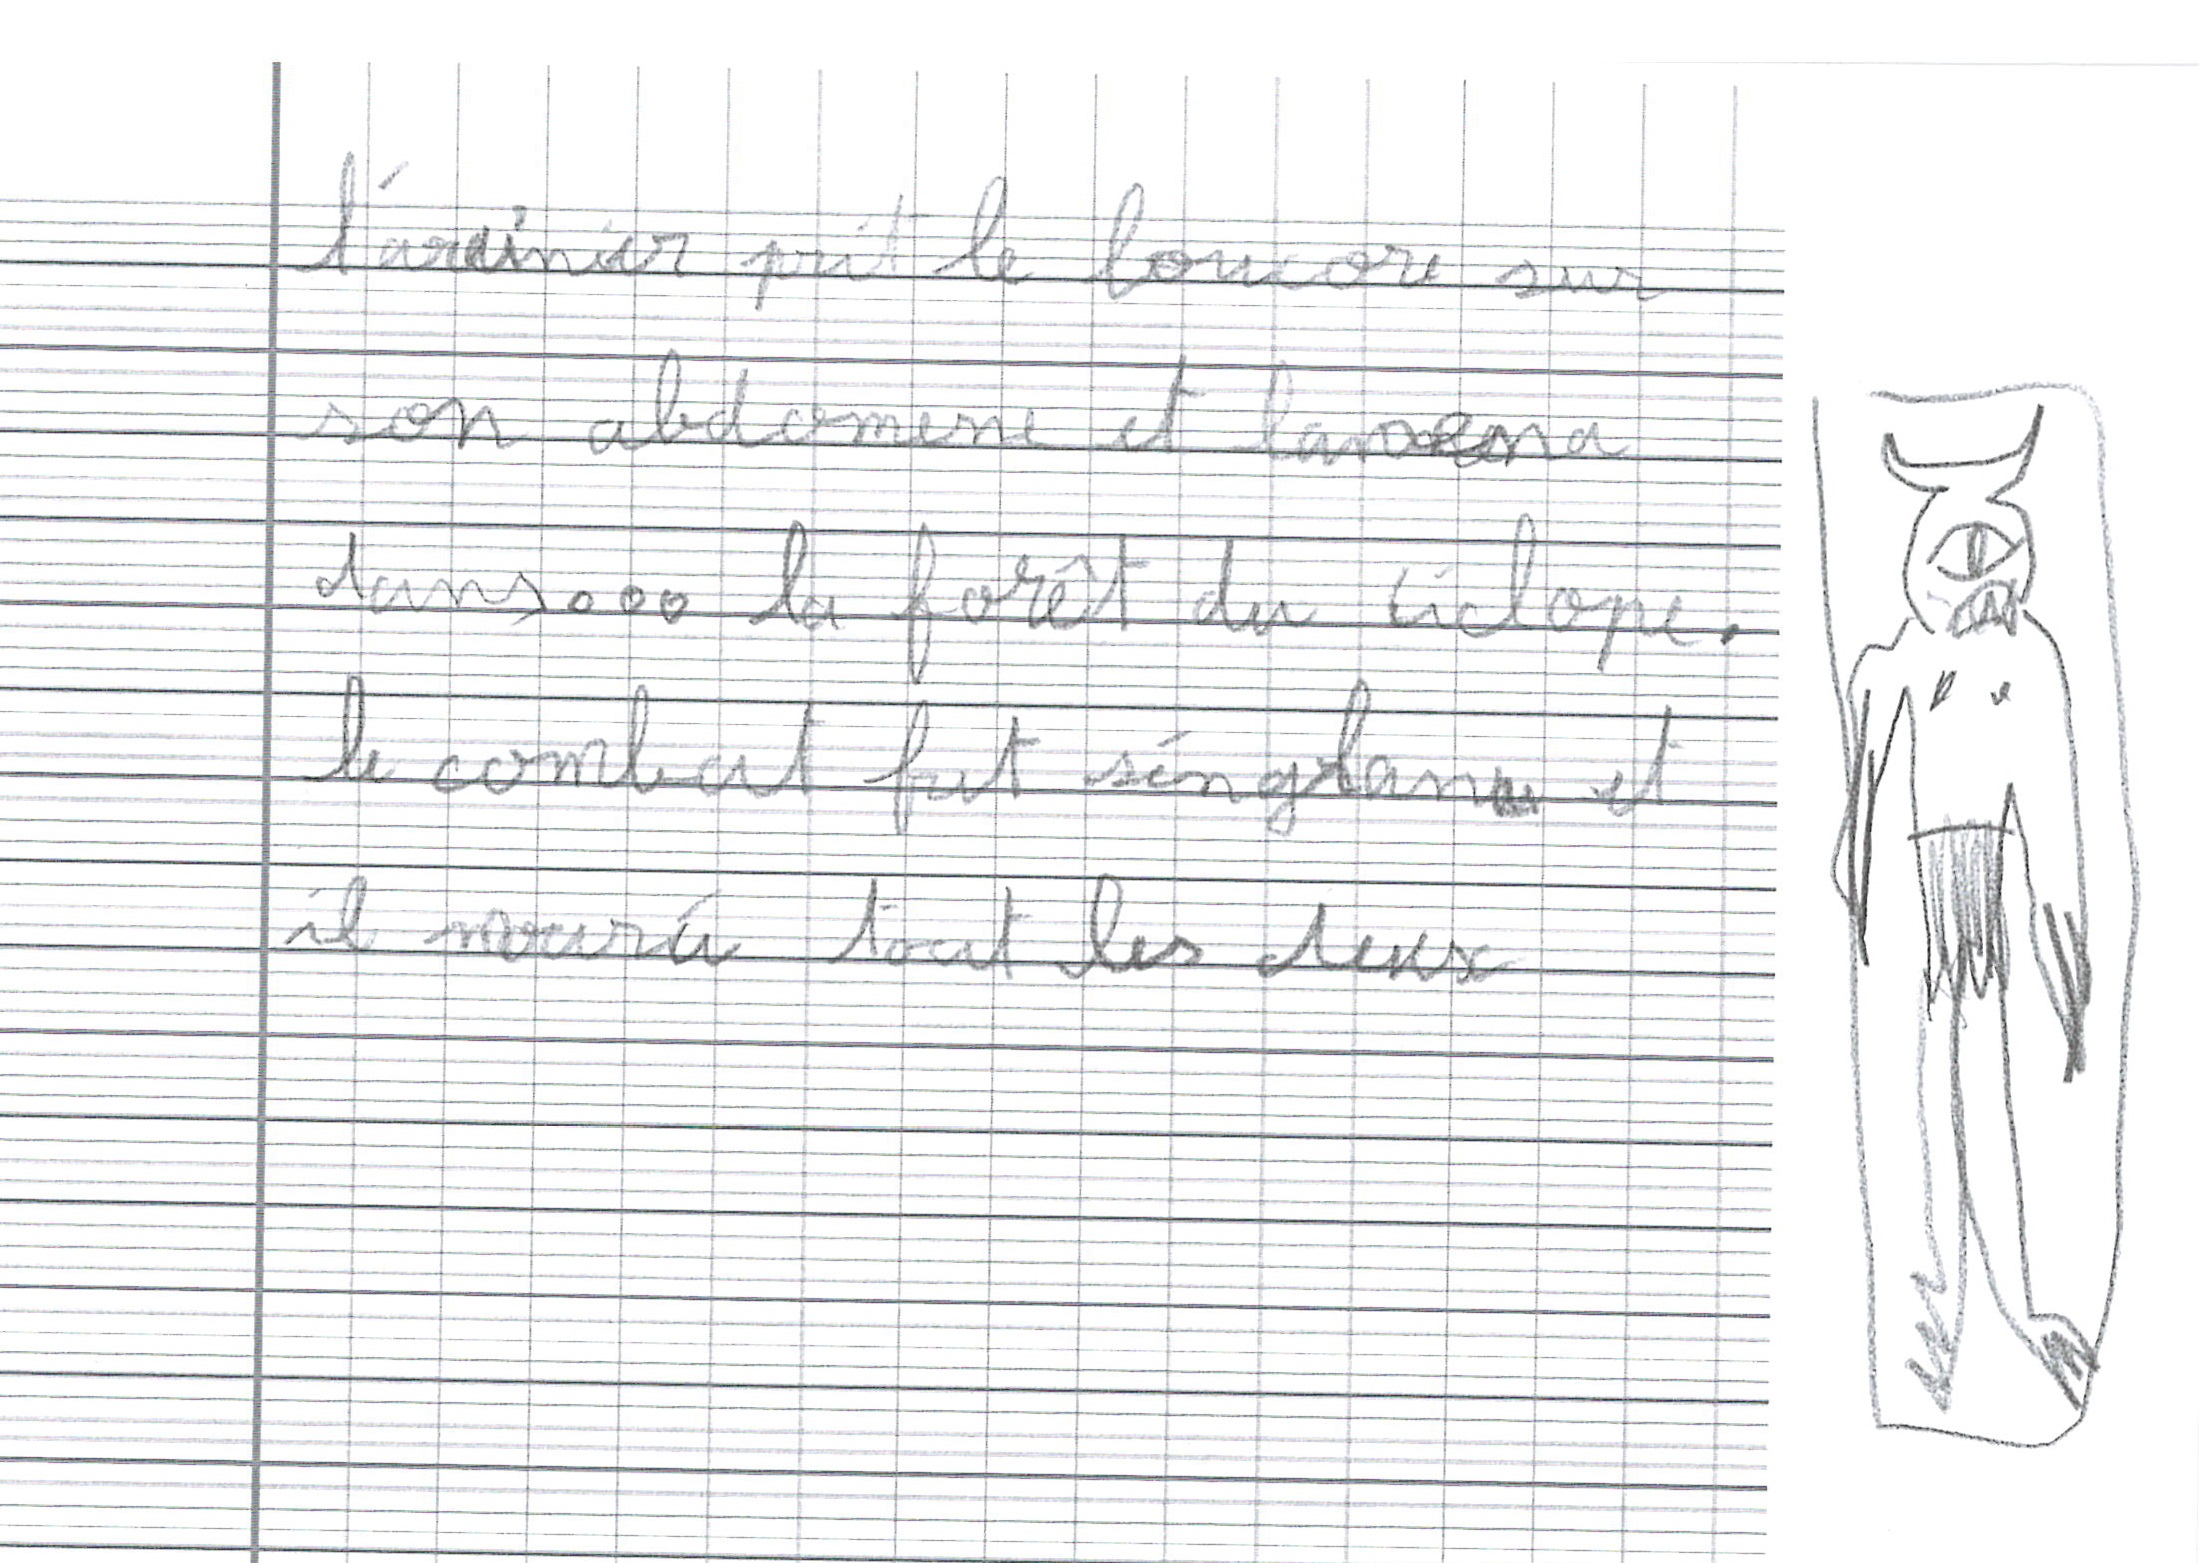 l'arainier prit le loucore sur
son abdomene et lamena
dans... la forêt du ciclope.
le combat fut singlant et
il mourú tout les deux